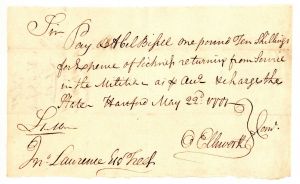 Sir
Pay Abel Bissel one pound Ten Shillings
for Expence of Sickness returning from Service
in the Militia as & charge the
State Hartford May 22d. 1781
Ellsworth Comte.
Jno. Lawrence Esqr Treasr